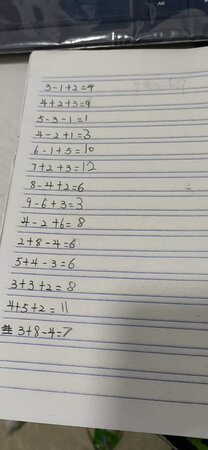 3-1+2=4
4+2+3=9
5-3-1=1
4-2+1=3
6-1+5=10
7+2+3=12
8-4+2=6
9-6+3=3
4-2+6=8
2+8-4=6
5+4-3=6
3+3+2=8
4+5+2=11
3+8-4=7